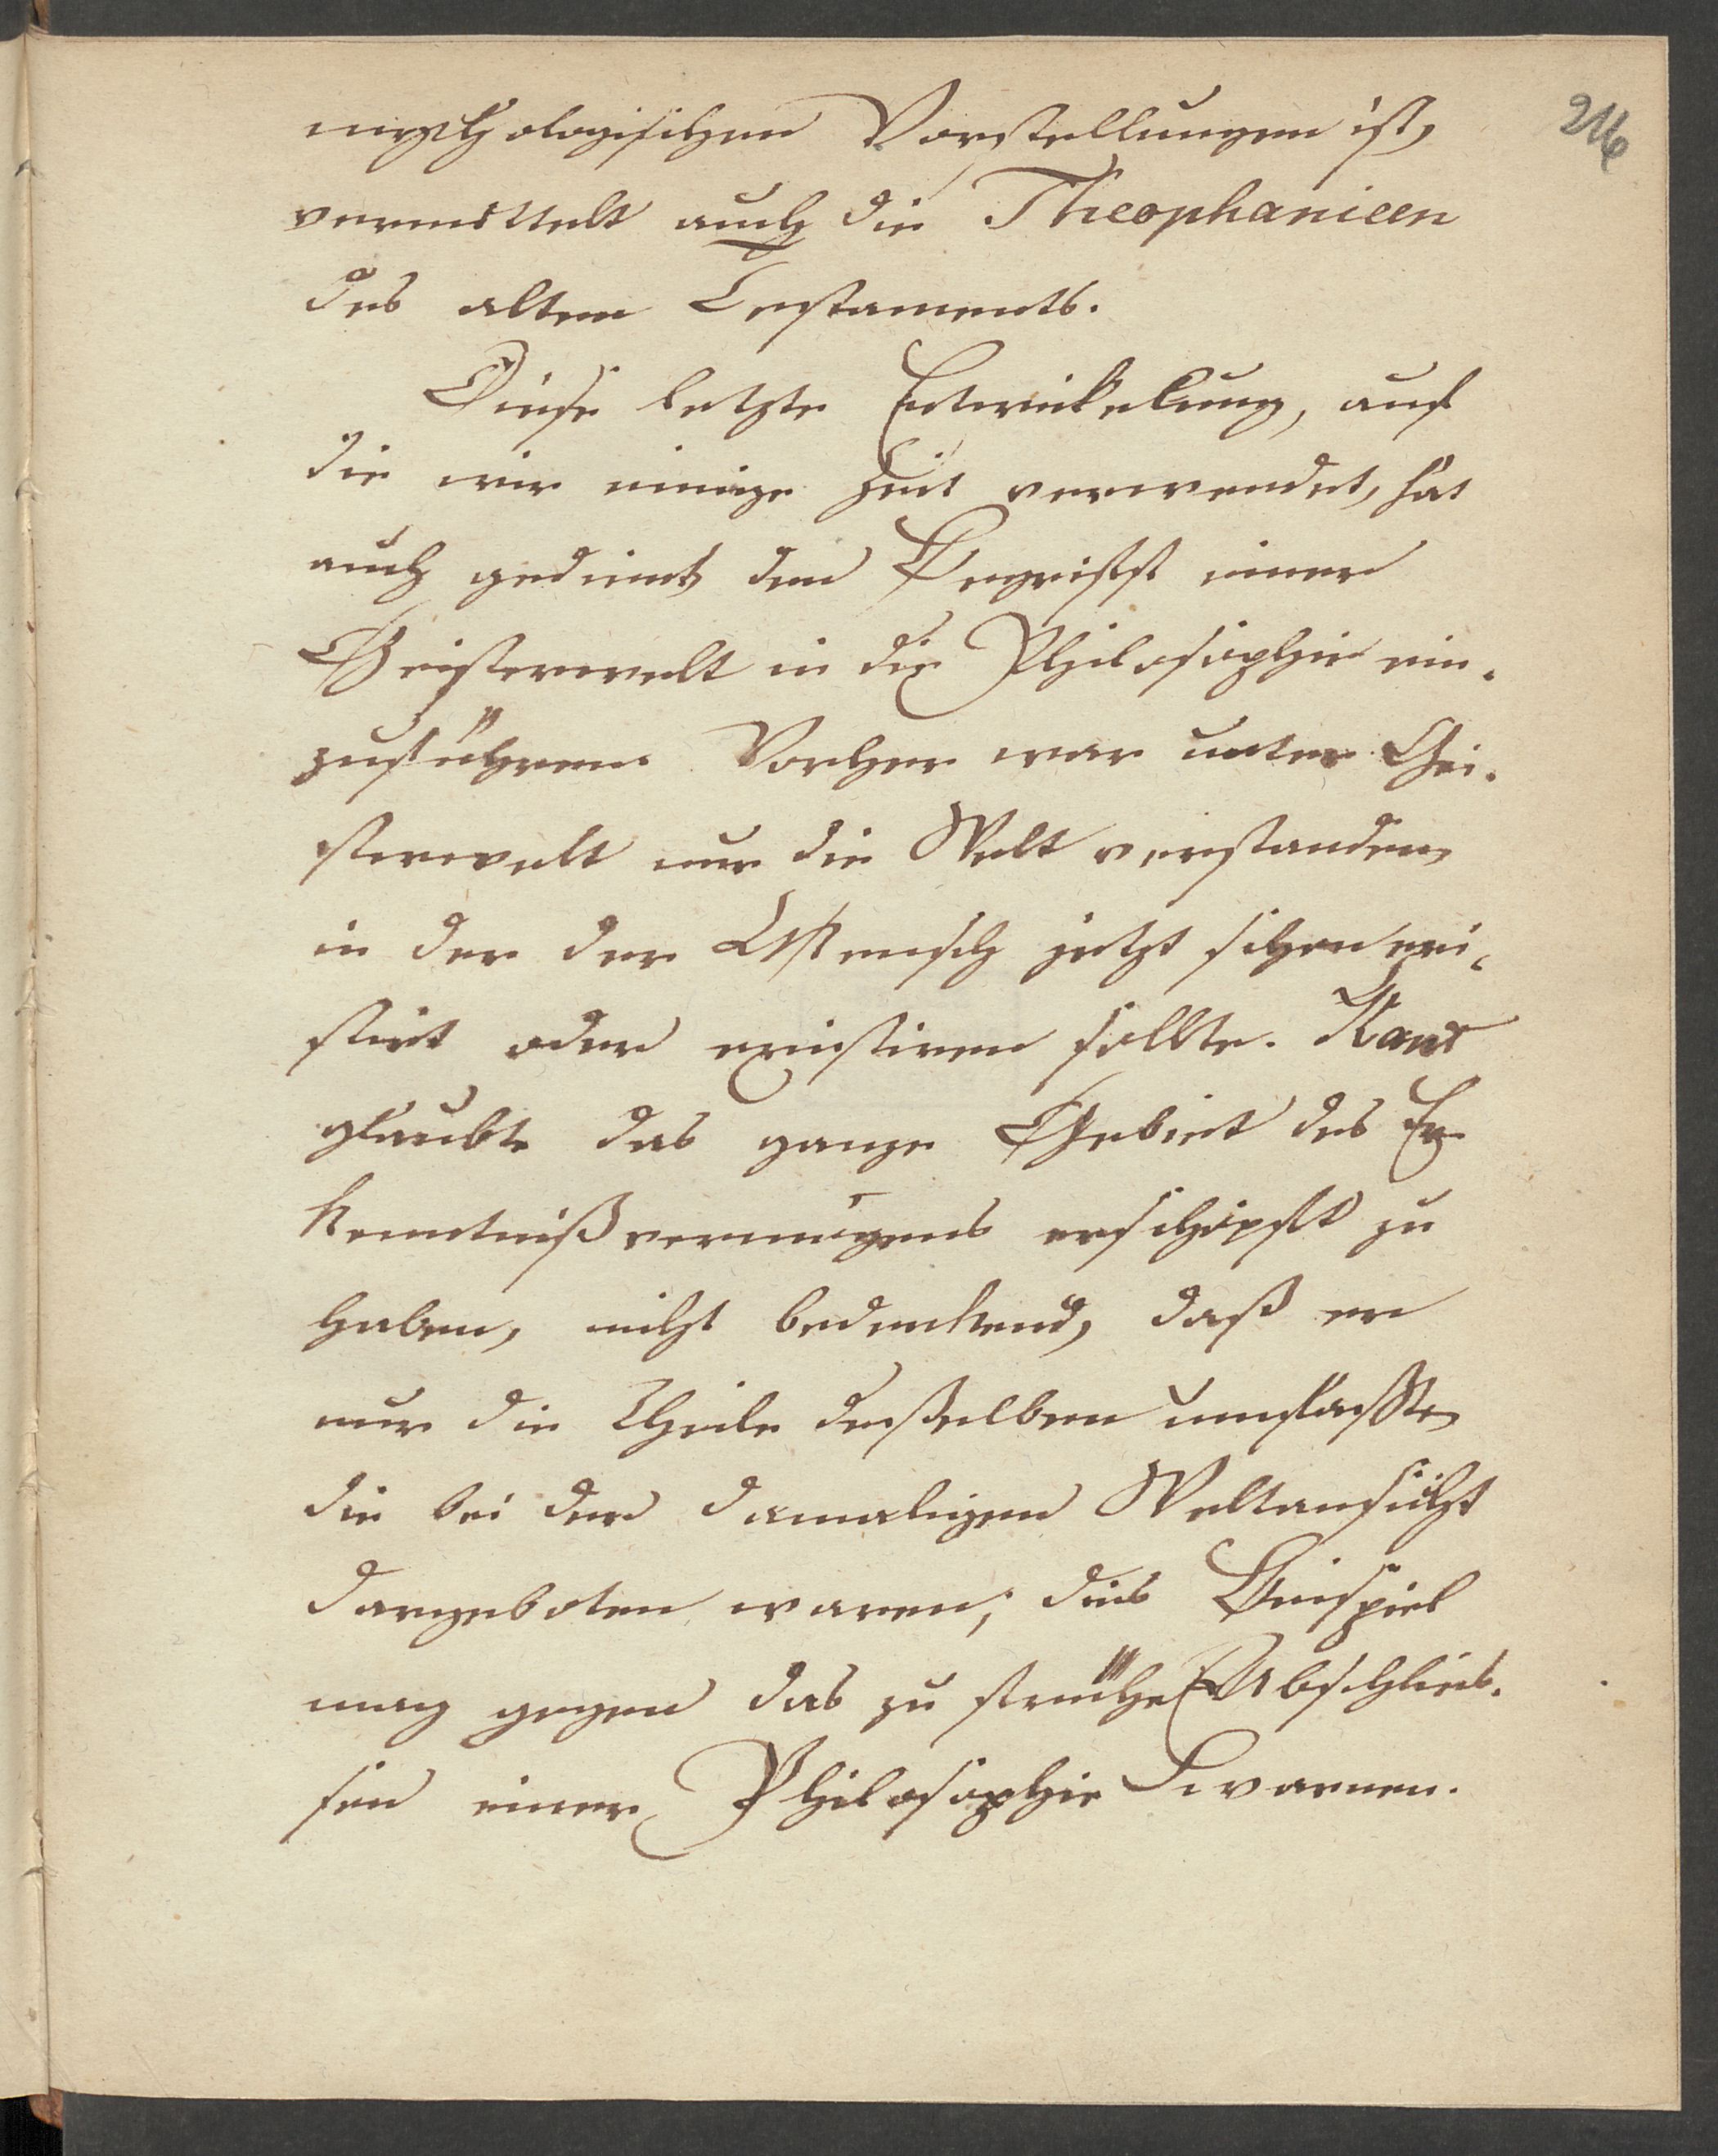 216
mythologischen Vorstellungen ist,
vermittelt auch die Theophanieen
des alten Testaments.
Diese letzte Entwickelung, auf
die wir einige Zeit verwendet, hat
auch gedient, den Begriff einer
Geisterwelt in die Philosophie ein-
zuführen. Vorher war unter Gei-
sterwelt nur die Welt verstanden,
in der der Mensch jetzt schon exi-
stirt oder existiren sollte. Kant
glaubte das ganze Gebiet des Er-
kenntnißvermögens erschöpft zu
haben, nicht bedenkend, daß er
nur die Theile deßelben umfaßte,
die bei der damaligen Weltansicht
dargeboten waren; dies Beispiel
mag gegen das zu frühe Abschlies-
sen einer Philosophie warnen.